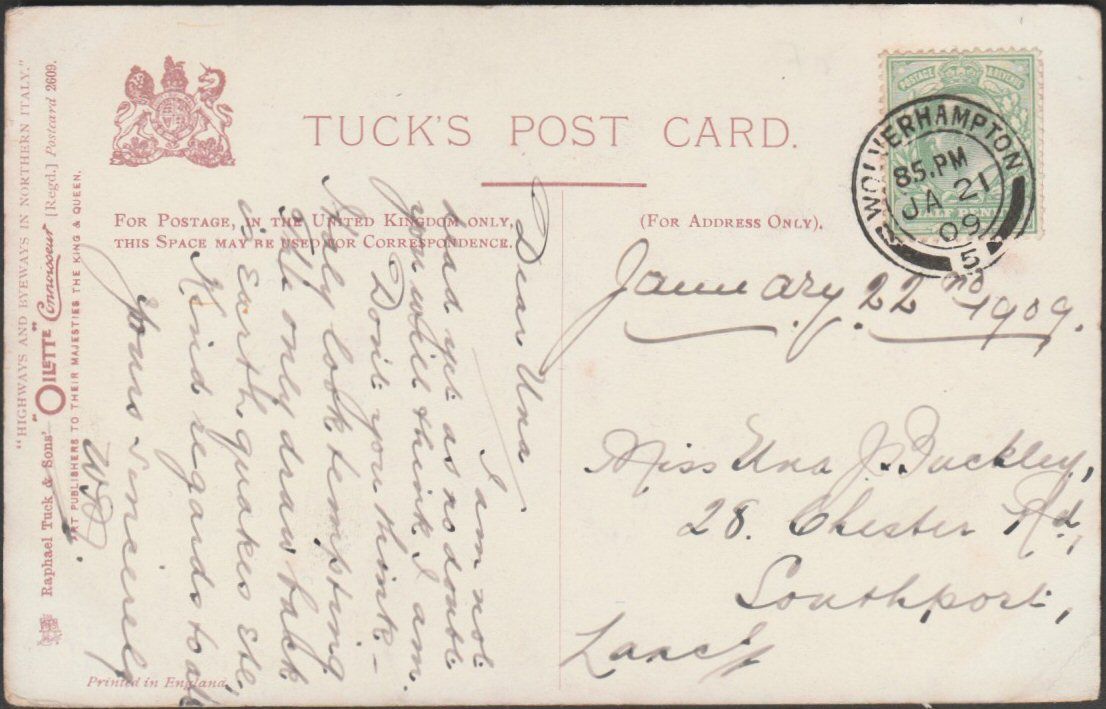 "HIGHWAYS AND BYEWAYS IN NORTHERN ITALY."
Raphael Tuck & Sons' "OILETTE" Connoisseur [Regd.] Postcard 2609.
ART PUBLISHERS TO THEIR MAJESTIES THE KING & QUEEN.
TUCK'S POST CARD.
FOR POSTAGE, IN THE UNITED KINGDOM ONLY,
THIS SPACE MAY BE USED FOR CORRESPONDENCE.
(FOR ADDRESS ONLY).
POSTAGE & REVENUE
HALF PENNY
WOLVERHAMPTON
85.PM
JA 21
09
5
Dear Una
I am not
dead yet as no doubt
you will think I am.
Don't you think -
Italy look tempting
the only draw back
is Earth quakes etc.
Kind regards to all
Yours sincerely
January 22nd 1909.
Miss Una J. Buckley,
28. Chester Rd,
Southport,
Lancs
Printed in England.